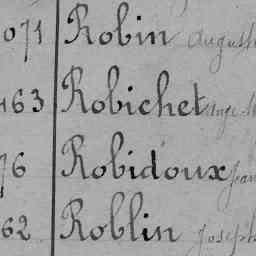 071 Robin Auguste
463 Robichet Ange
76 Robidoux Jean
62 Roblin Joseph